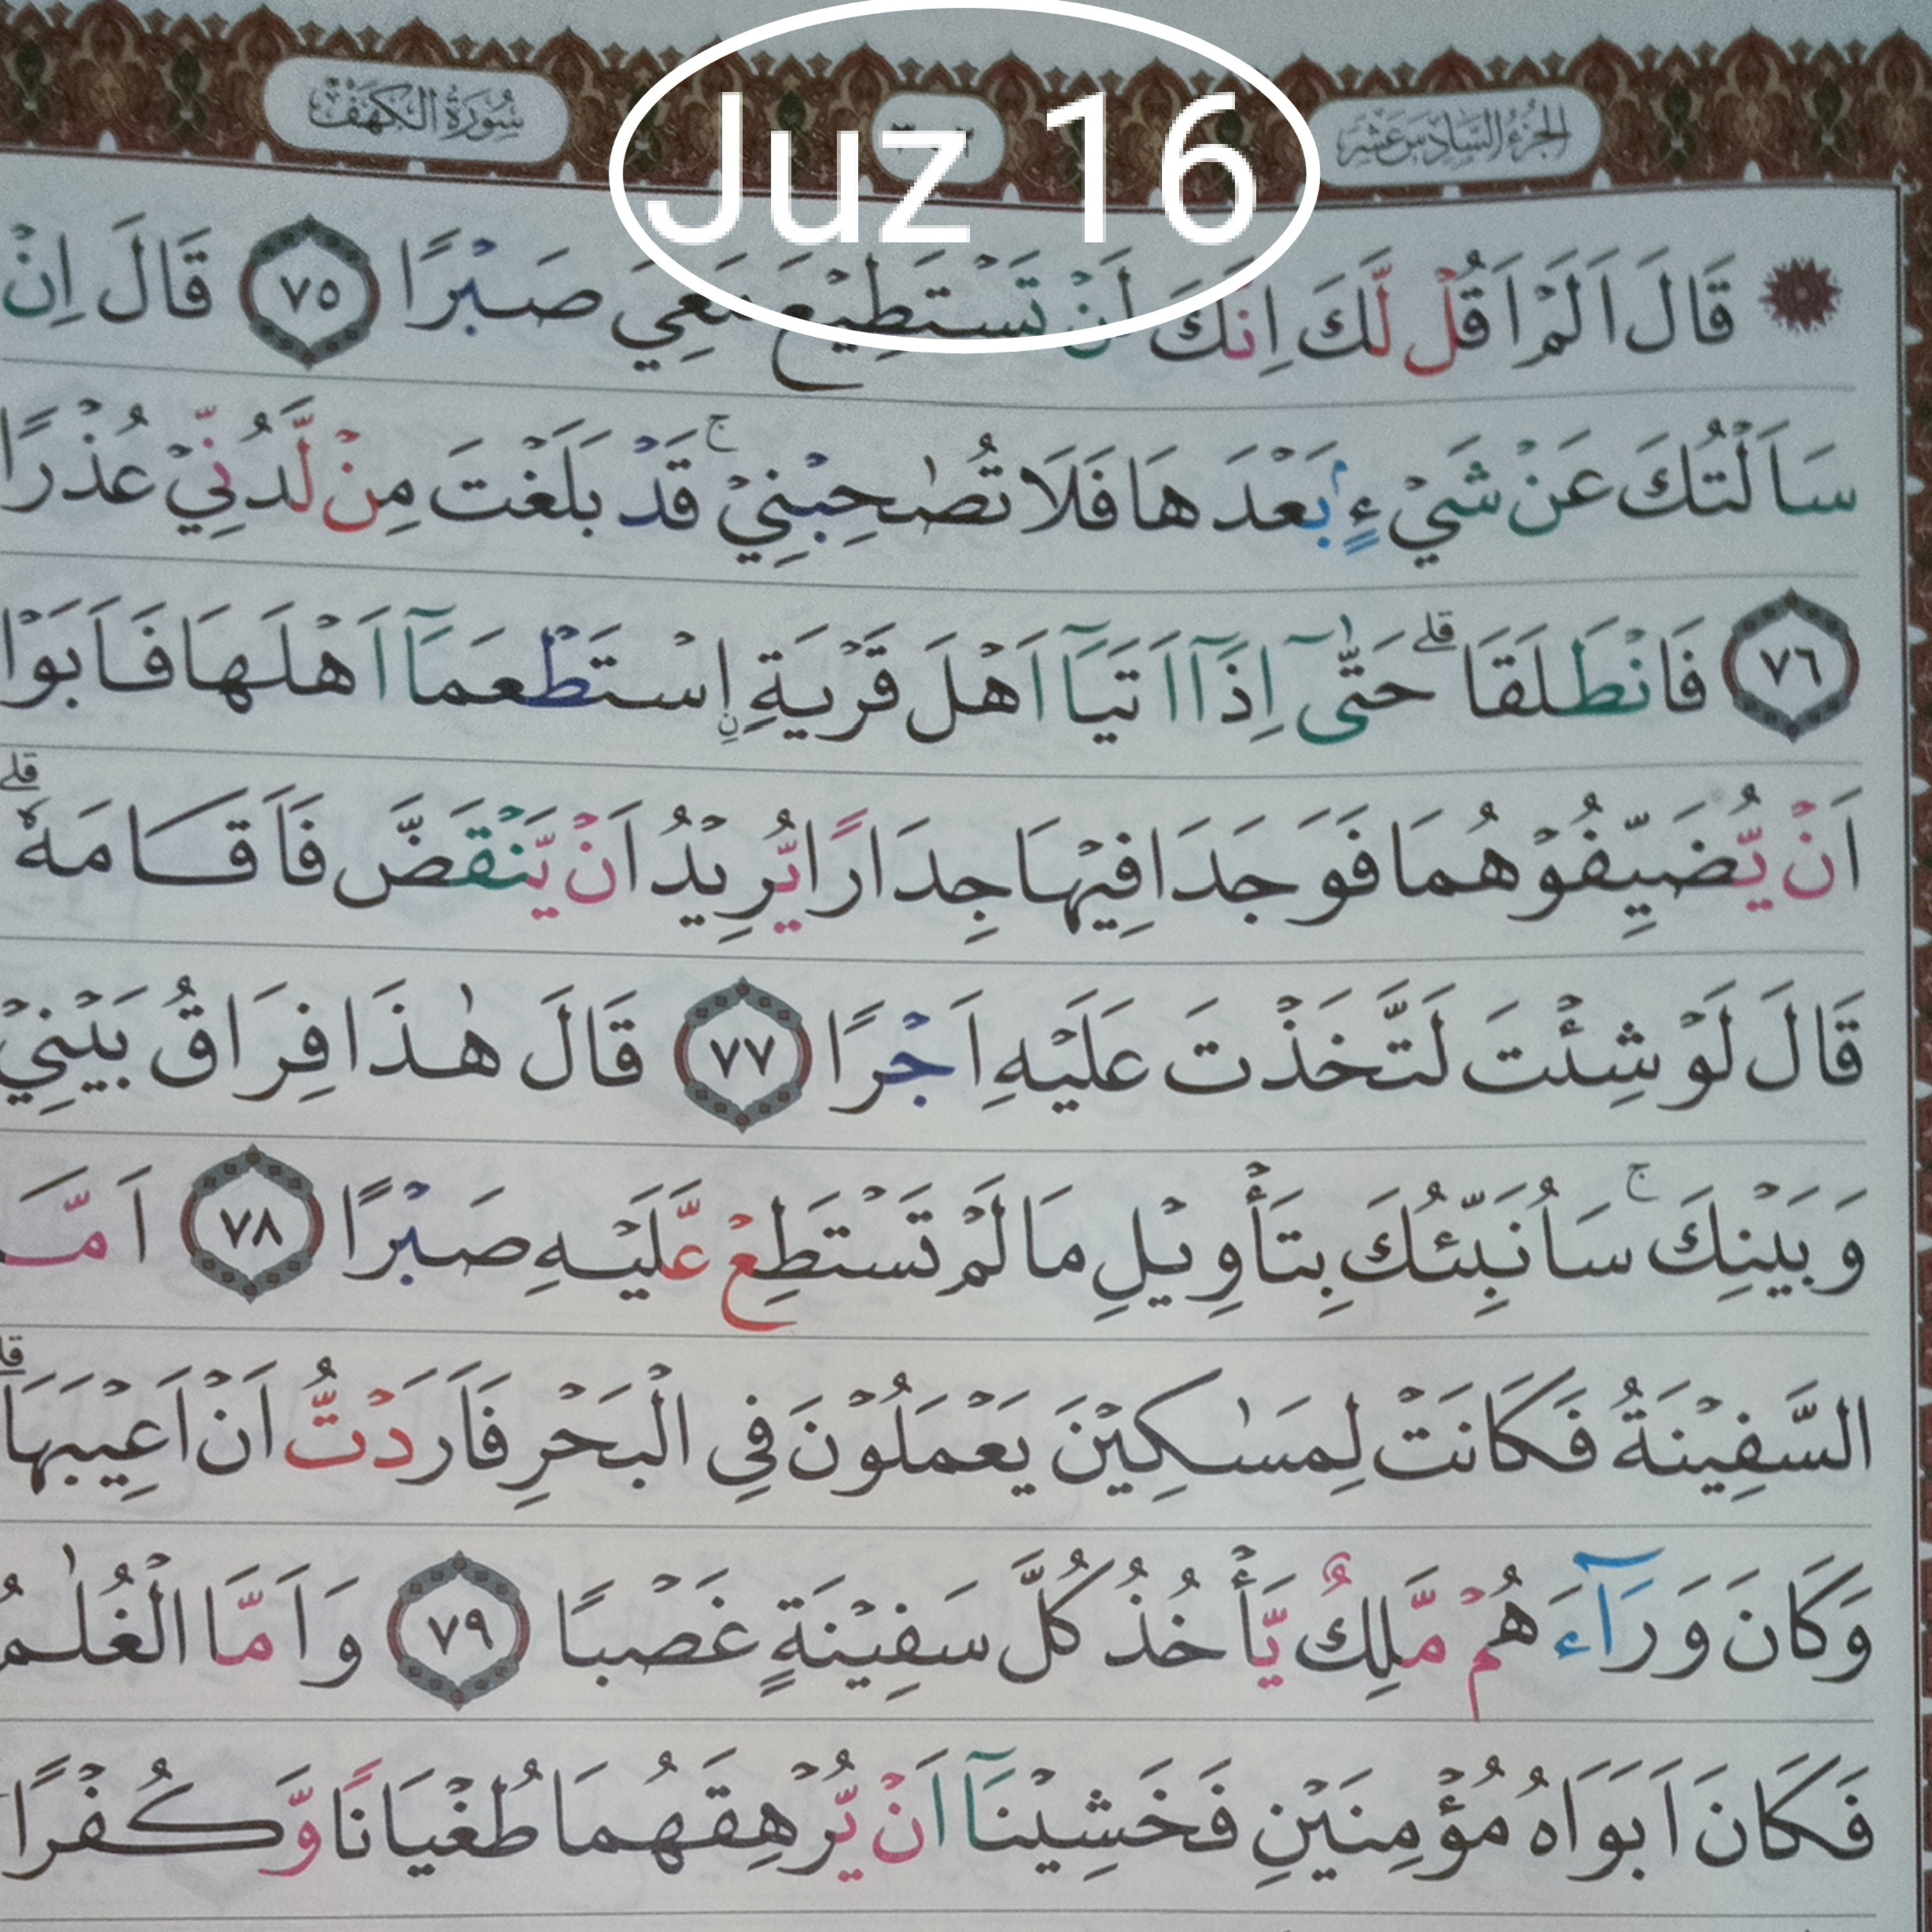 الجزء السادس عشر
Juz 16
سورة الكهف
قَالَ اَلَمْ اَقُلْ لَّكَ اِنَّكَ لَنْ تَسْتَطِيْعَ مَعِيَ صَبْرًا ٧٥ قَالَ اِنْ
سَاَلْتُكَ عَنْ شَيْءٍ ۢ بَعْدَهَا فَلَا تُصٰحِبْنِيْ ۚ قَدْ بَلَغْتَ مِنْ لَّدُنِّيْ عُذْرًا
٧٦ فَانْطَلَقَا ۗ حَتّٰىٓ اِذَآ اَتَيَآ اَهْلَ قَرْيَةِ ِۨاسْتَطْعَمَآ اَهْلَهَا فَاَبَوْا
اَنْ يُّضَيِّفُوْهُمَا فَوَجَدَا فِيْهَا جِدَارًا يُّرِيْدُ اَنْ يَّنْقَضَّ فَاَقَامَهٗ ۗ
قَالَ لَوْ شِئْتَ لَتَّخَذْتَ عَلَيْهِ اَجْرًا ٧٧ قَالَ هٰذَا فِرَاقُ بَيْنِيْ
وَبَيْنِكَ ۚ سَاُنَبِّئُكَ بِتَأْوِيْلِ مَا لَمْ تَسْتَطِعْ عَّلَيْهِ صَبْرًا ٧٨ اَمَّا
السَّفِيْنَةُ فَكَانَتْ لِمَسٰكِيْنَ يَعْمَلُوْنَ فِى الْبَحْرِ فَاَرَدْتُّ اَنْ اَعِيْبَهَا ۗ
وَكَانَ وَرَآءَهُمْ مَّلِكٌ يَّأْخُذُ كُلَّ سَفِيْنَةٍ غَصْبًا ٧٩ وَاَمَّا الْغُلٰمُ
فَكَانَ اَبَوَاهُ مُؤْمِنَيْنِ فَخَشِيْنَآ اَنْ يُّرْهِقَهُمَا طُغْيَانًا وَّكُفْرًا